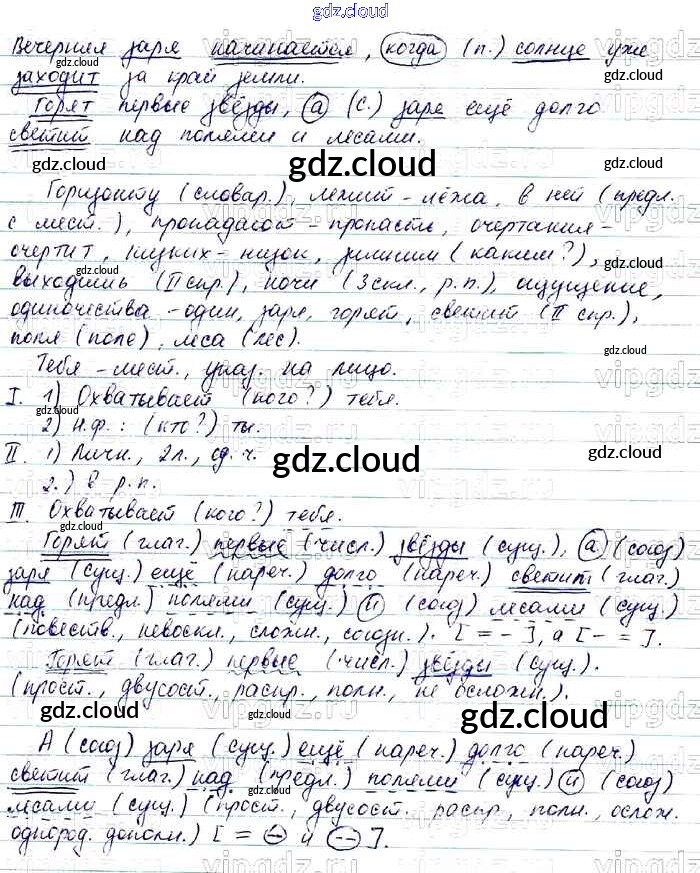 gdz.cloud
Вечерняя заря начинается, когда (п.) солнце уже
заходит за край земли.
Горят первые звёзды, а (с.) заря ещё долго
светит над полями и лесами.
Горизонту (словар.), лежит - лёжа, в ней (предл.
с мест.), пропадают - пропасть, очертания -
очертит, низких - низок, зимним (каким?),
выходишь (II спр.), ночи (3 скл., р.п.), ощущение,
одиночества - один, заря, горят, светит (II спр.),
поля (поле), леса (лес).
Тебя - мест., указ. на лицо.
I. 1) Охватывает (кого?) тебя.
2) Н.ф.: (кто?) ты.
II. 1) Личн., 2 л., ед. ч.
2.) в р.п.
III. Охватывает (кого?) тебя.
Горят (глаг.) первые (числ.) звёзды (сущ.), а (союз)
заря (сущ.) ещё (нареч.) долго (нареч.) светит (глаг.)
над (предл.) полями (сущ.) и (союз) лесами (сущ.)
(повеств., невоскл., сложн., союзн.). [ = - ], а [ - = ].
Горят (глаг.) первые (числ.) звёзды (сущ.).
(прост., двусост., распр., полн., не осложн.).
А (союз) заря (сущ.) ещё (нареч.) долго (нареч.)
светит (глаг.) над (предл.) полями (сущ.) и (союз)
лесами (сущ.) (прост., двусост. распр., полн., ослож.
однород. дополн.) [ = (--) и (--) ].